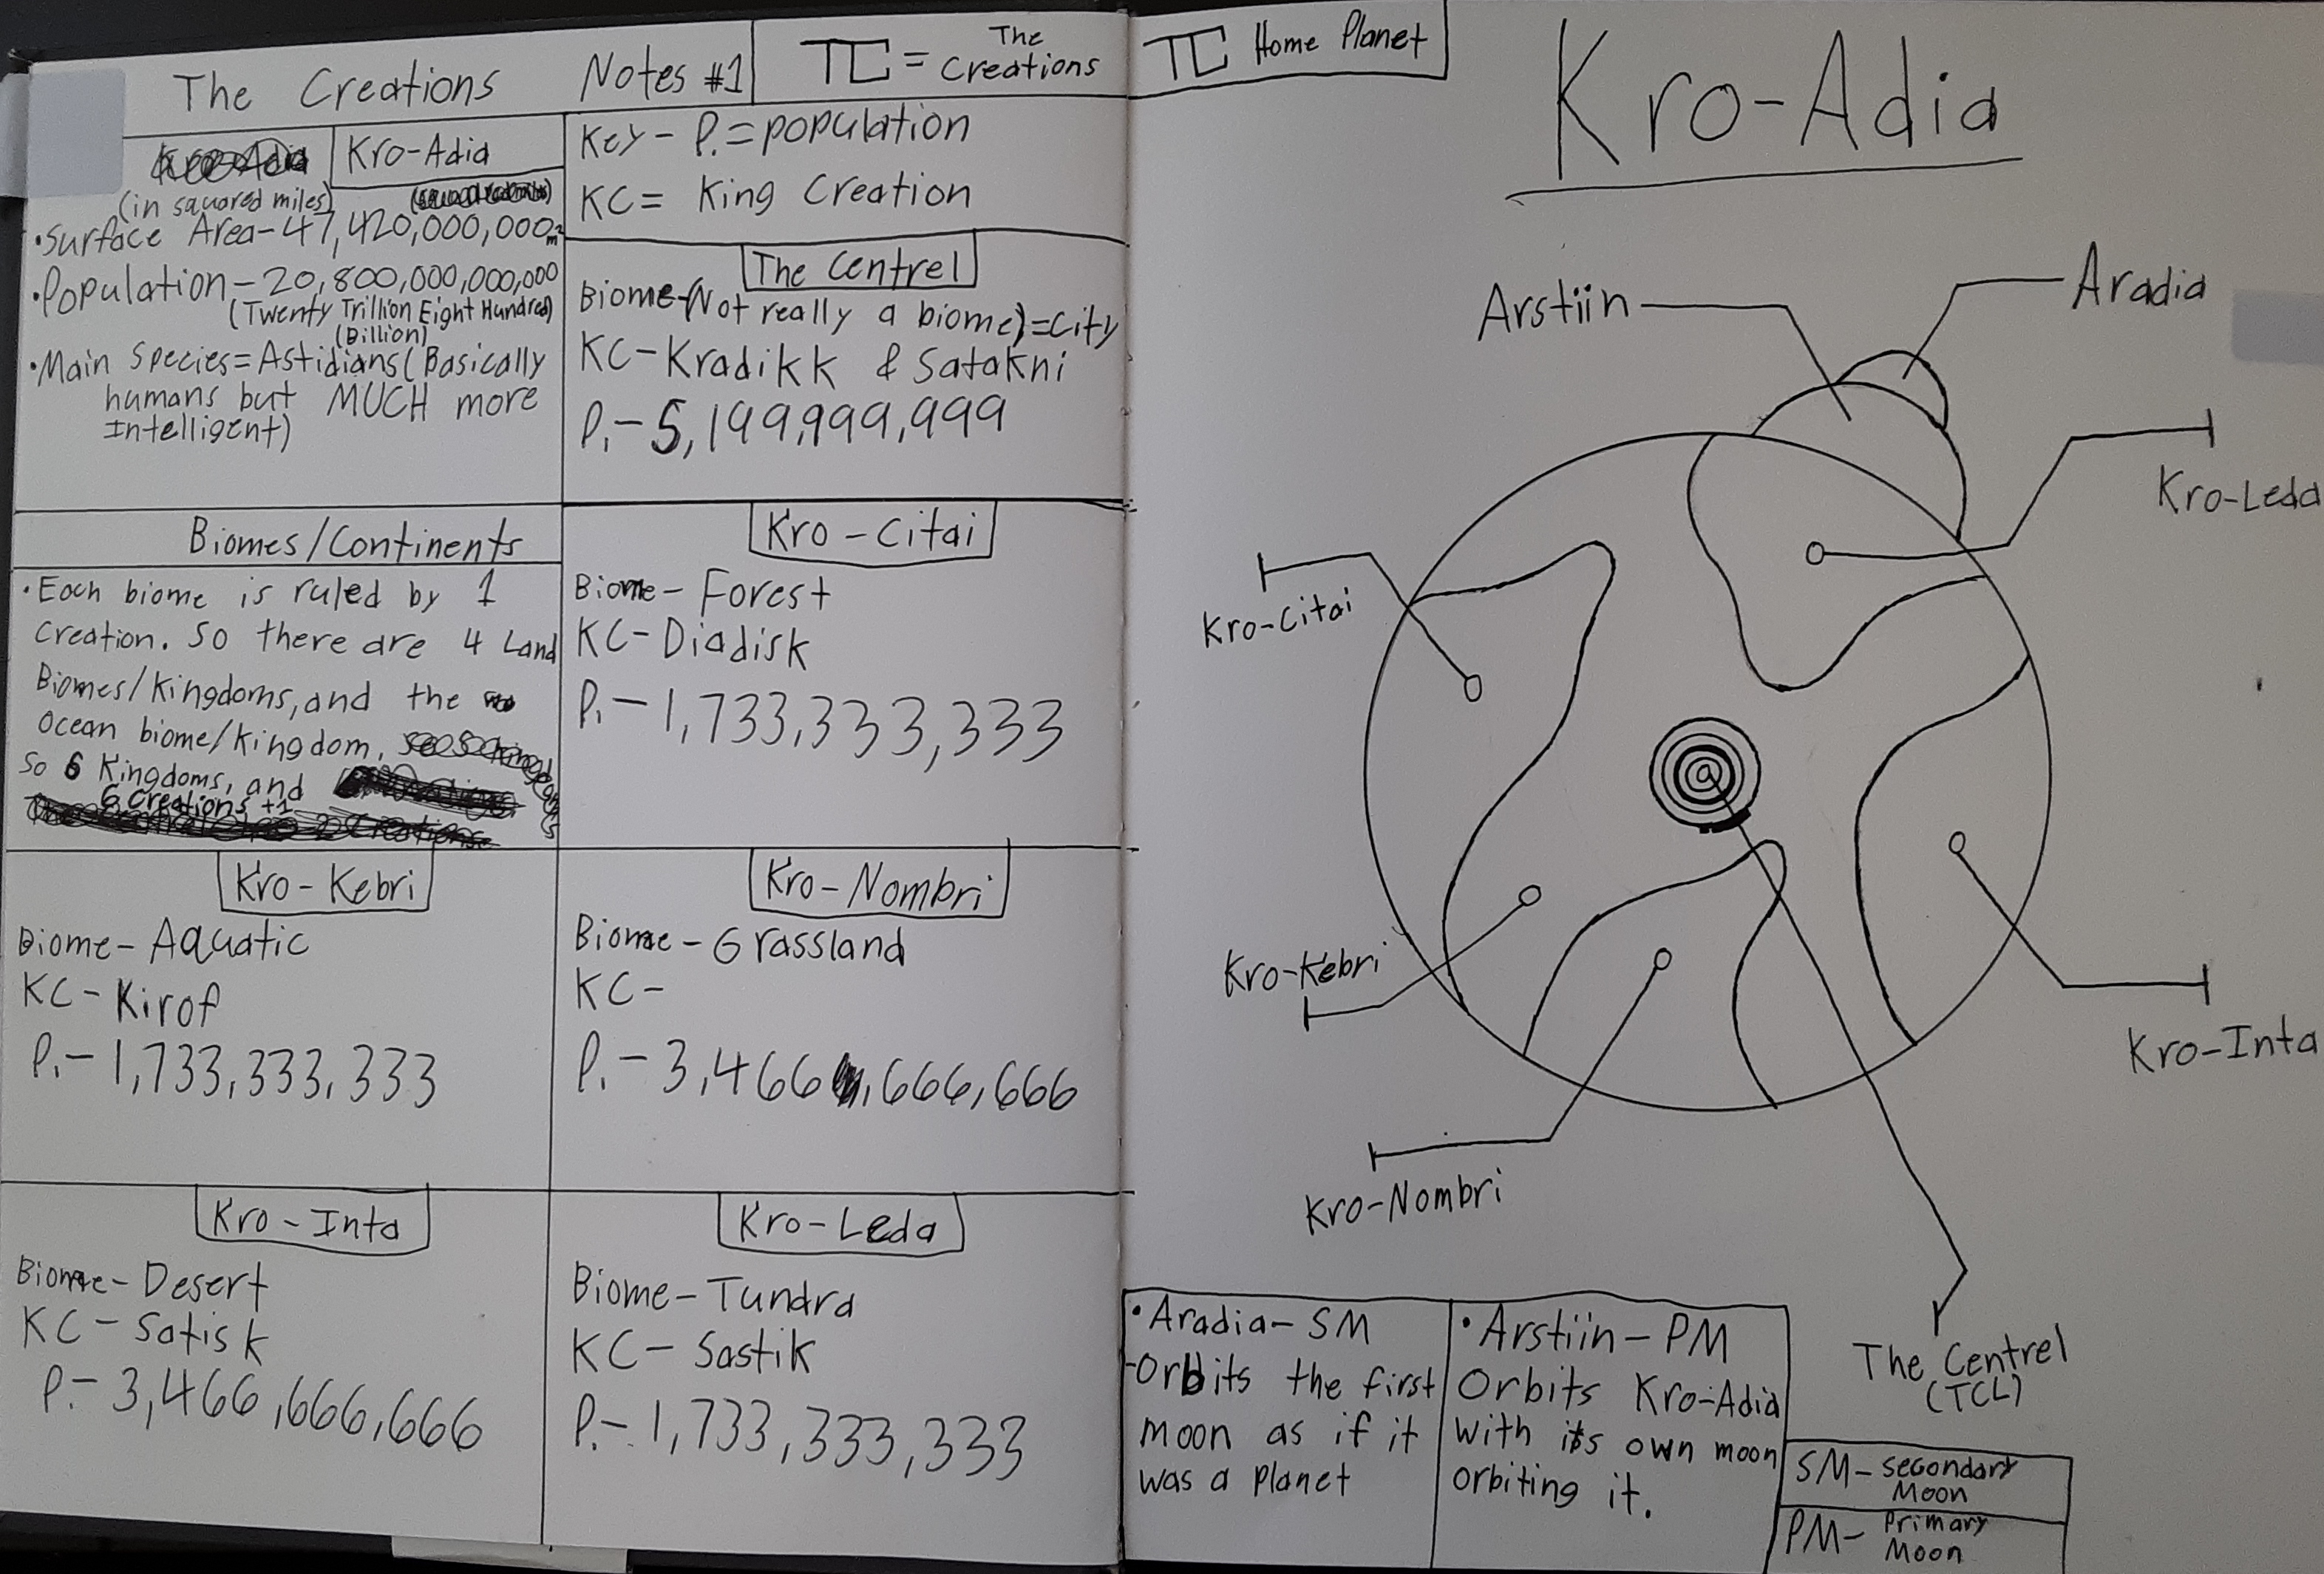 The Creations Notes #1
TC = The
Creations
Kro-Adia
(in squared miles)
•Surface Area-47,420,000,000m²
•Population-20,800,000,000,000
(Twenty Trillion Eight Hundred)
(Billion)
•Main Species=Astidians(Basically
humans but MUCH more
Intelligent)
Key- P.=population
KC= King Creation
The Centrel
Biome-(Not really a biome)=City
KC-Kradikk & Satakni
P.-5,199,999,999
Biomes/Continents
•Each biome is ruled by 1
creation. So there are 4 Land
Biomes/Kingdoms, and the
ocean biome/kingdom,
So 6 Kingdoms, and
6 Creations +1
Kro-Citai
Biome-Forest
KC-Diadisk
P.-1,733,333,333
Kro-Kebri
Biome-Aquatic
KC-Kirof
P.-1,733,333,333
Kro-Nombri
Biome-Grassland
KC-
P.-3,466,666,666
Kro-Inta
Biome-Desert
KC-Satisk
P.-3,466,666,666
Kro-Leda
Biome-Tundra
KC-Sastik
P.-1,733,333,333
TC Home Planet
Kro-Adia
Arstiin
Aradia
Kro-Leda
Kro-Citai
Kro-Kebri
Kro-Inta
Kro-Nombri
The Centrel
(TCL)
•Aradia-SM
-Orbits the first
moon as if it
was a planet
•Arstiin-PM
Orbits Kro-Adia
with its own moon
orbiting it.
SM-Secondary
Moon
PM-Primary
Moon